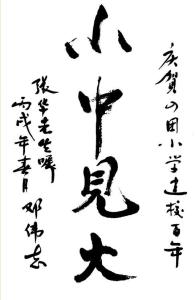 庆贺四团小学建校百年
小中見大
張华先生嘱
丙戌年春月 邓伟志